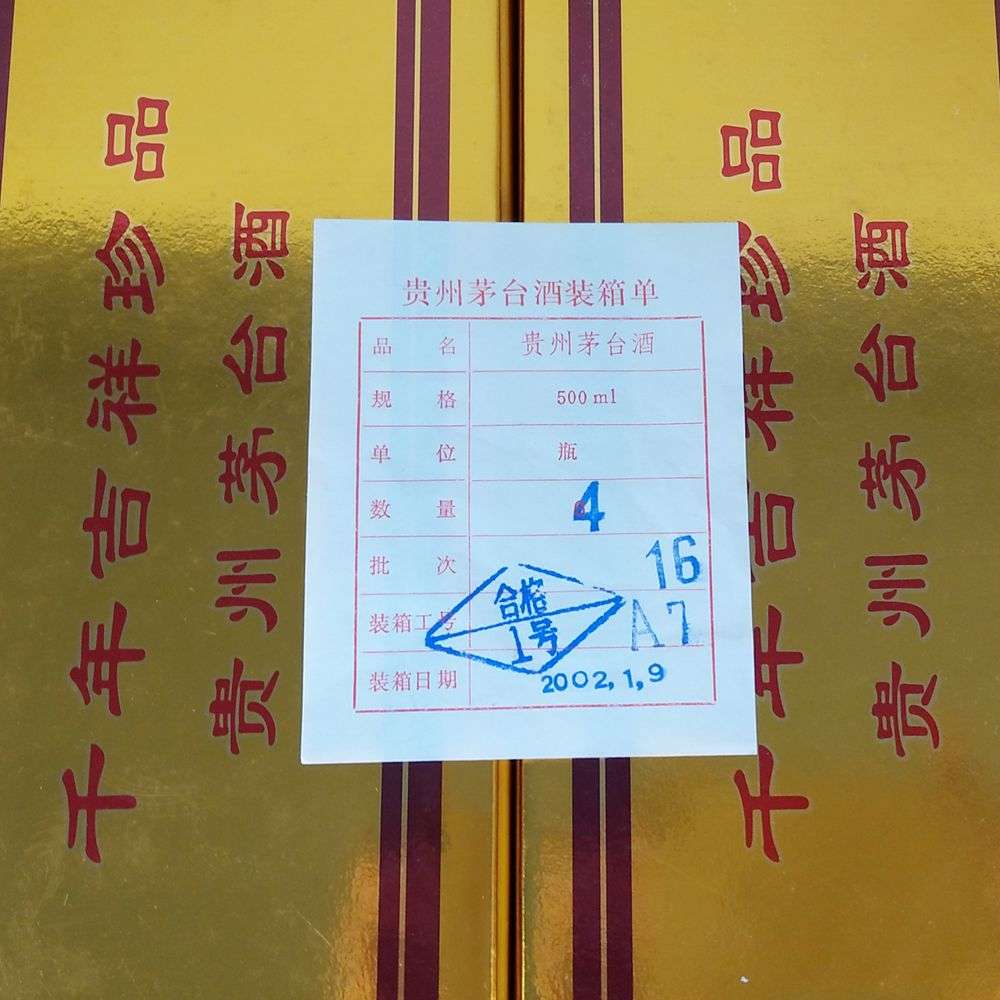 千年吉祥珍品
贵州茅台酒
贵州茅台酒装箱单
品名 贵州茅台酒
规格 500ml
单位 瓶
数量 4
批次 16
装箱工号 A7
合格
1号
装箱日期 2002,1,9
千年吉祥珍品
贵州茅台酒